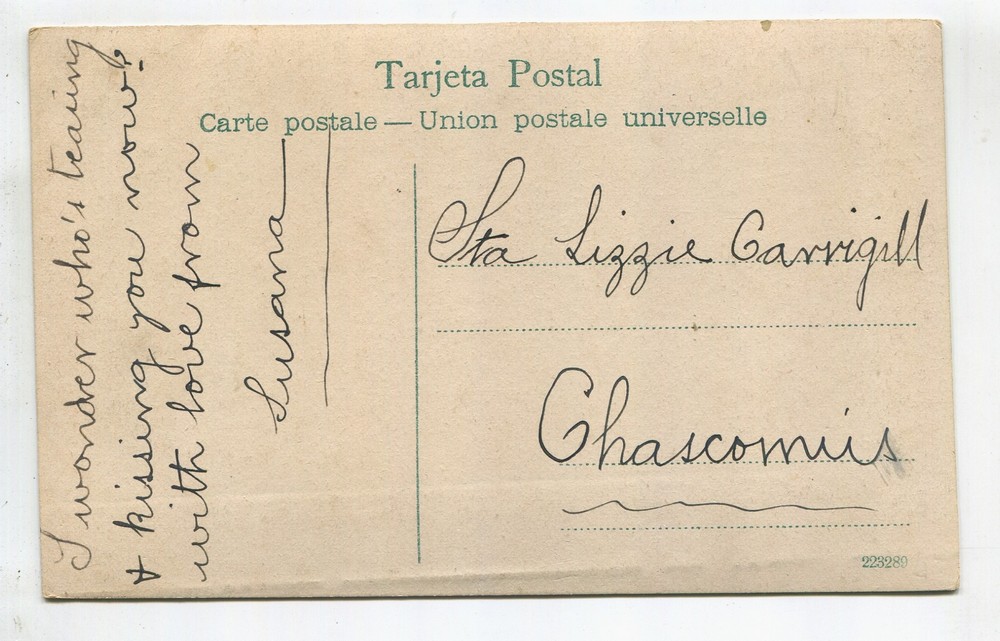 Tarjeta Postal
Carte postale — Union postale universelle
I wonder who's teasing
& kissing you now?
with love from
Susana
Sta Lizzie Carrigill
Chascomús
223289